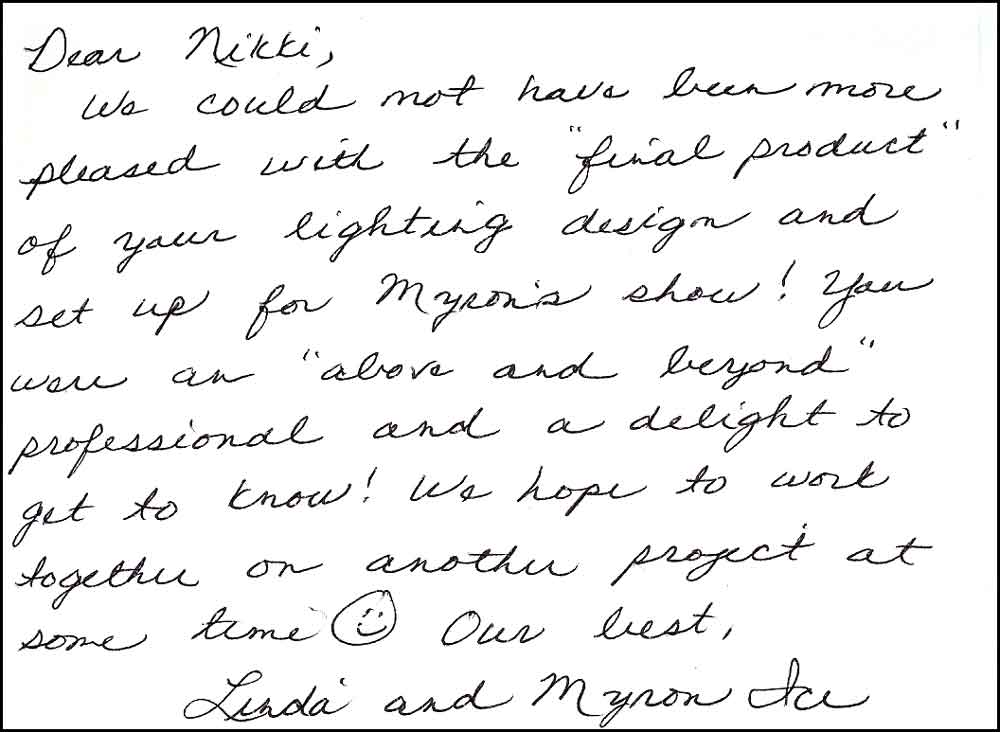 Dear Nikki,
We could not have been more
pleased with the "final product"
of your lighting design and
set up for Myron's show! You
were an "above and beyond"
professional and a delight to
get to know! We hope to work
together on another project at
some time ☺ Our best,
Linda and Myron Ice